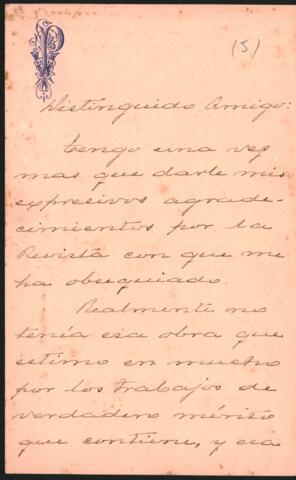 (5)
Distinguido Amigo:
Tengo una vez
mas que darle mis
expresivos agrade-
cimientos por la
Revista con que me
ha obsequiado.
Realmente no
tenía esa obra que
estimo en mucho
por los trabajos de
verdadero mérito
que contiene, y esa